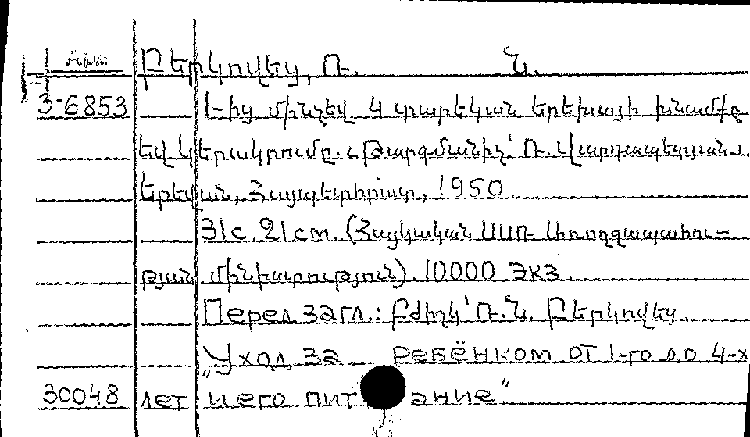 Բերկովեց, Ռ. Ն.
3-6853 1-ից մինչեվ 4 տարեկան երեխայի խնամքը
եվ կերակրումը. Թարգմանիչ՝ Ռ. Վարդապետյան.
Երեվան, Հայպետհրատ, 1950
31с. 21 см. (Հայկական ՍՍՌ Առողջապահու-
թյան մինիստրություն). 10000 экз.
Перел загл.: Բժիշկ՝ Ռ. Ն. Բերկովեց.
„Уход за ребёнком от 1-го до 4-х
30048 лет и его питание"